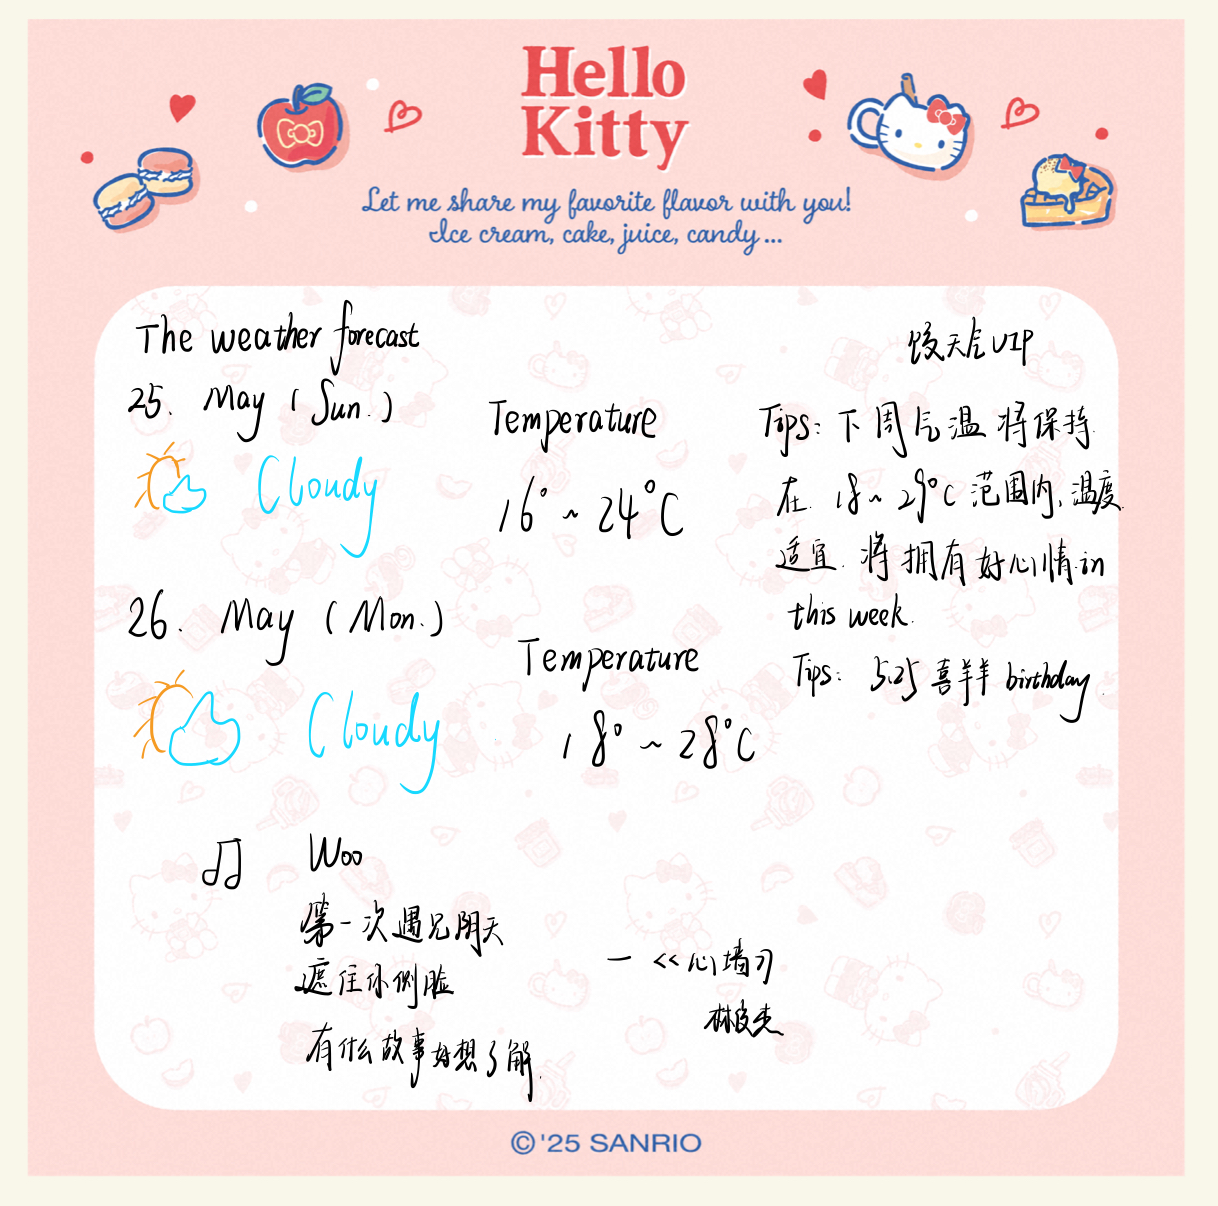 Hello
Kitty
Let me share my favorite flavor with you!
Ice cream, cake, juice, candy...
The weather forecast
25. May (Sun.)
Cloudy
Temperature
16°~24°C
26. May (Mon.)
Cloudy
Temperature
18°~28°C
天气VIP
Tips: 下周气温将保持
在 18~29°C 范围内,温度
适宜.将拥有好心情 in
this week.
Tips: 5.25 喜羊羊 birthday.
Woo
第一次遇见阴天
遮住你侧脸
有什么故事好想了解.
—《心墙》
林俊杰
©'25 SANRIO